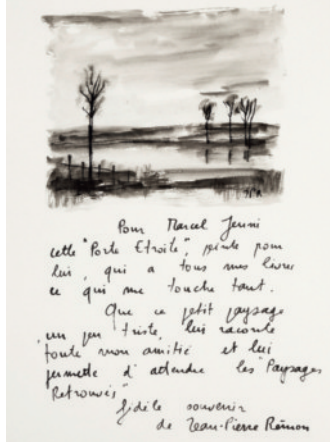 JPR
Pour Marcel Jenni
cette "Porte Etroite", peinte pour
lui, qui a tous mes livres
ce qui me touche tant.
Que ce petit paysage
un peu triste, lui raconte
toute mon amitié et lui
permette d'attendre les "Paysages
Retrouvés"
fidèle souvenir
de Jean-Pierre Rémon